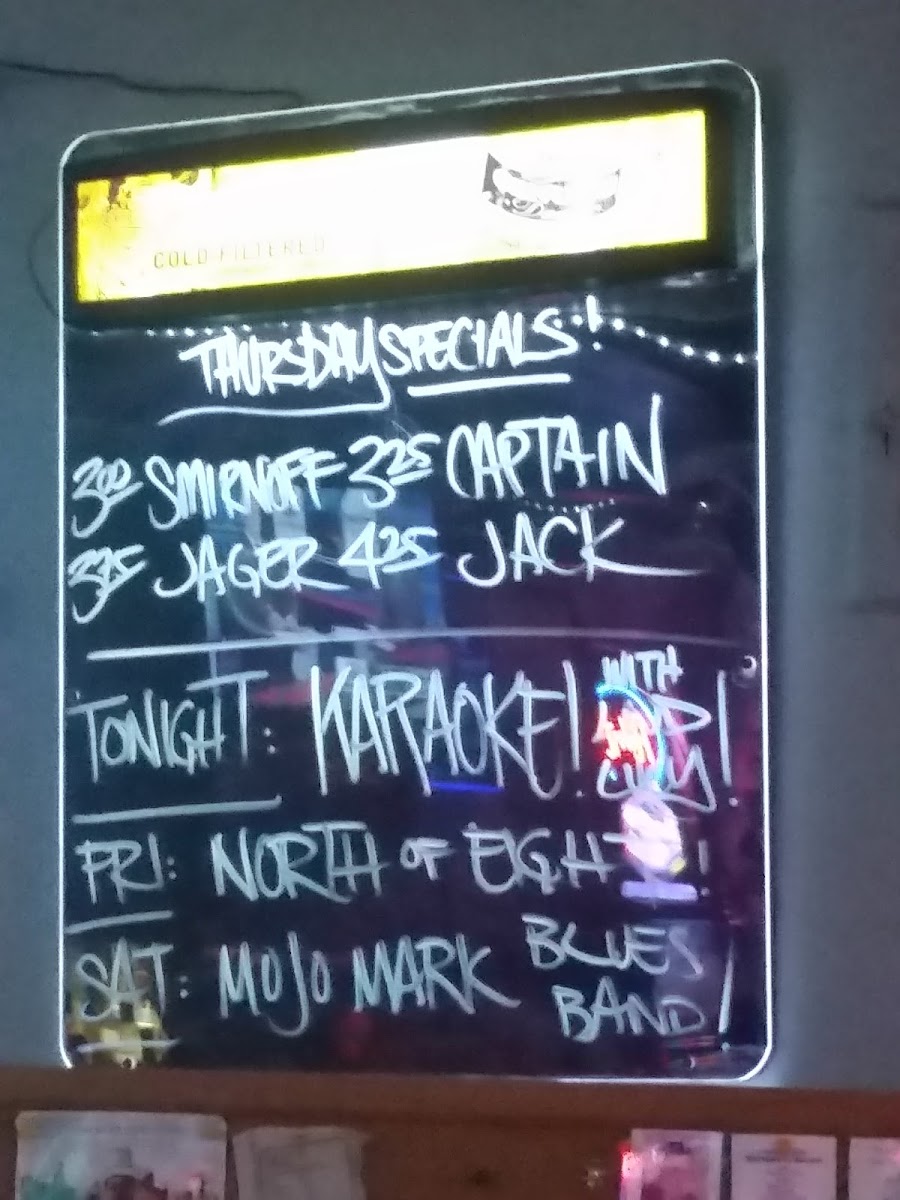 COLD FILTERED
THURSDAY SPECIALS!
300 SMIRNOFF 325 CAPTAIN
375 JAGER 425 JACK
TONIGHT: KARAOKE! WITH
!
FRI: NORTH OF EIGHTY!
SAT: MOJO MARK BLUES
BAND!